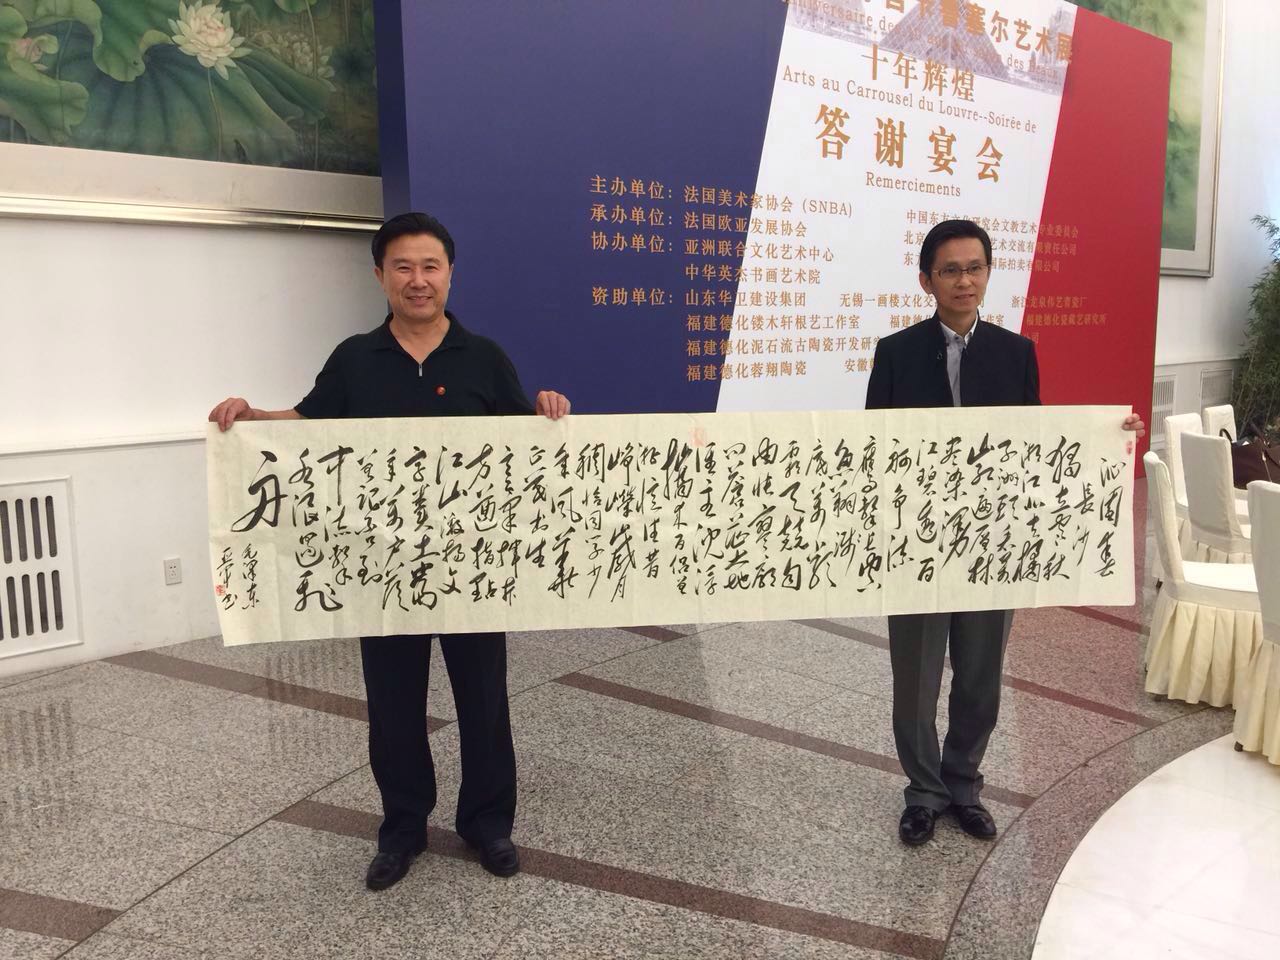 鲁塞尔艺术展
十年辉煌
Arts au Carrousel du Louvre--Soirée de
答谢宴会
Remerciements
主办单位：法国美术家协会（SNBA） 中国东方文化研究会文教艺术专业委员会
承办单位：法国欧亚发展协会 北京 艺术交流有限责任公司
协办单位：亚洲联合文化艺术中心 东方 国际拍卖有限公司
中华英杰书画艺术院
资助单位：山东华卫建设集团 无锡一画楼文化交 司 浙江龙泉伟艺青瓷厂
福建德化镂木轩根艺工作室 福建德 工作室 福建德化瓷藏艺研究所
福建德化泥石流古陶瓷开发研究 公司
福建德化蓉翔陶瓷 安徽
沁园春
長沙
獨立寒秋
湘江北去橘
子洲頭看萬
山红遍層林
尽染漫
江碧透百
舸争流
鹰擊長空
魚翔浅
底萬類
霜天競自
由怅寥廓
问蒼茫大地
谁主沉浮
携来百侣曾
游忆往昔
峥嵘岁月
稠恰同学少
年風華
正茂书生
意氣揮斥
方遒指點
江山激扬文
字糞土當
年萬户侯
曾记否到
中流擊
水浪遏飛
舟
毛澤東
书